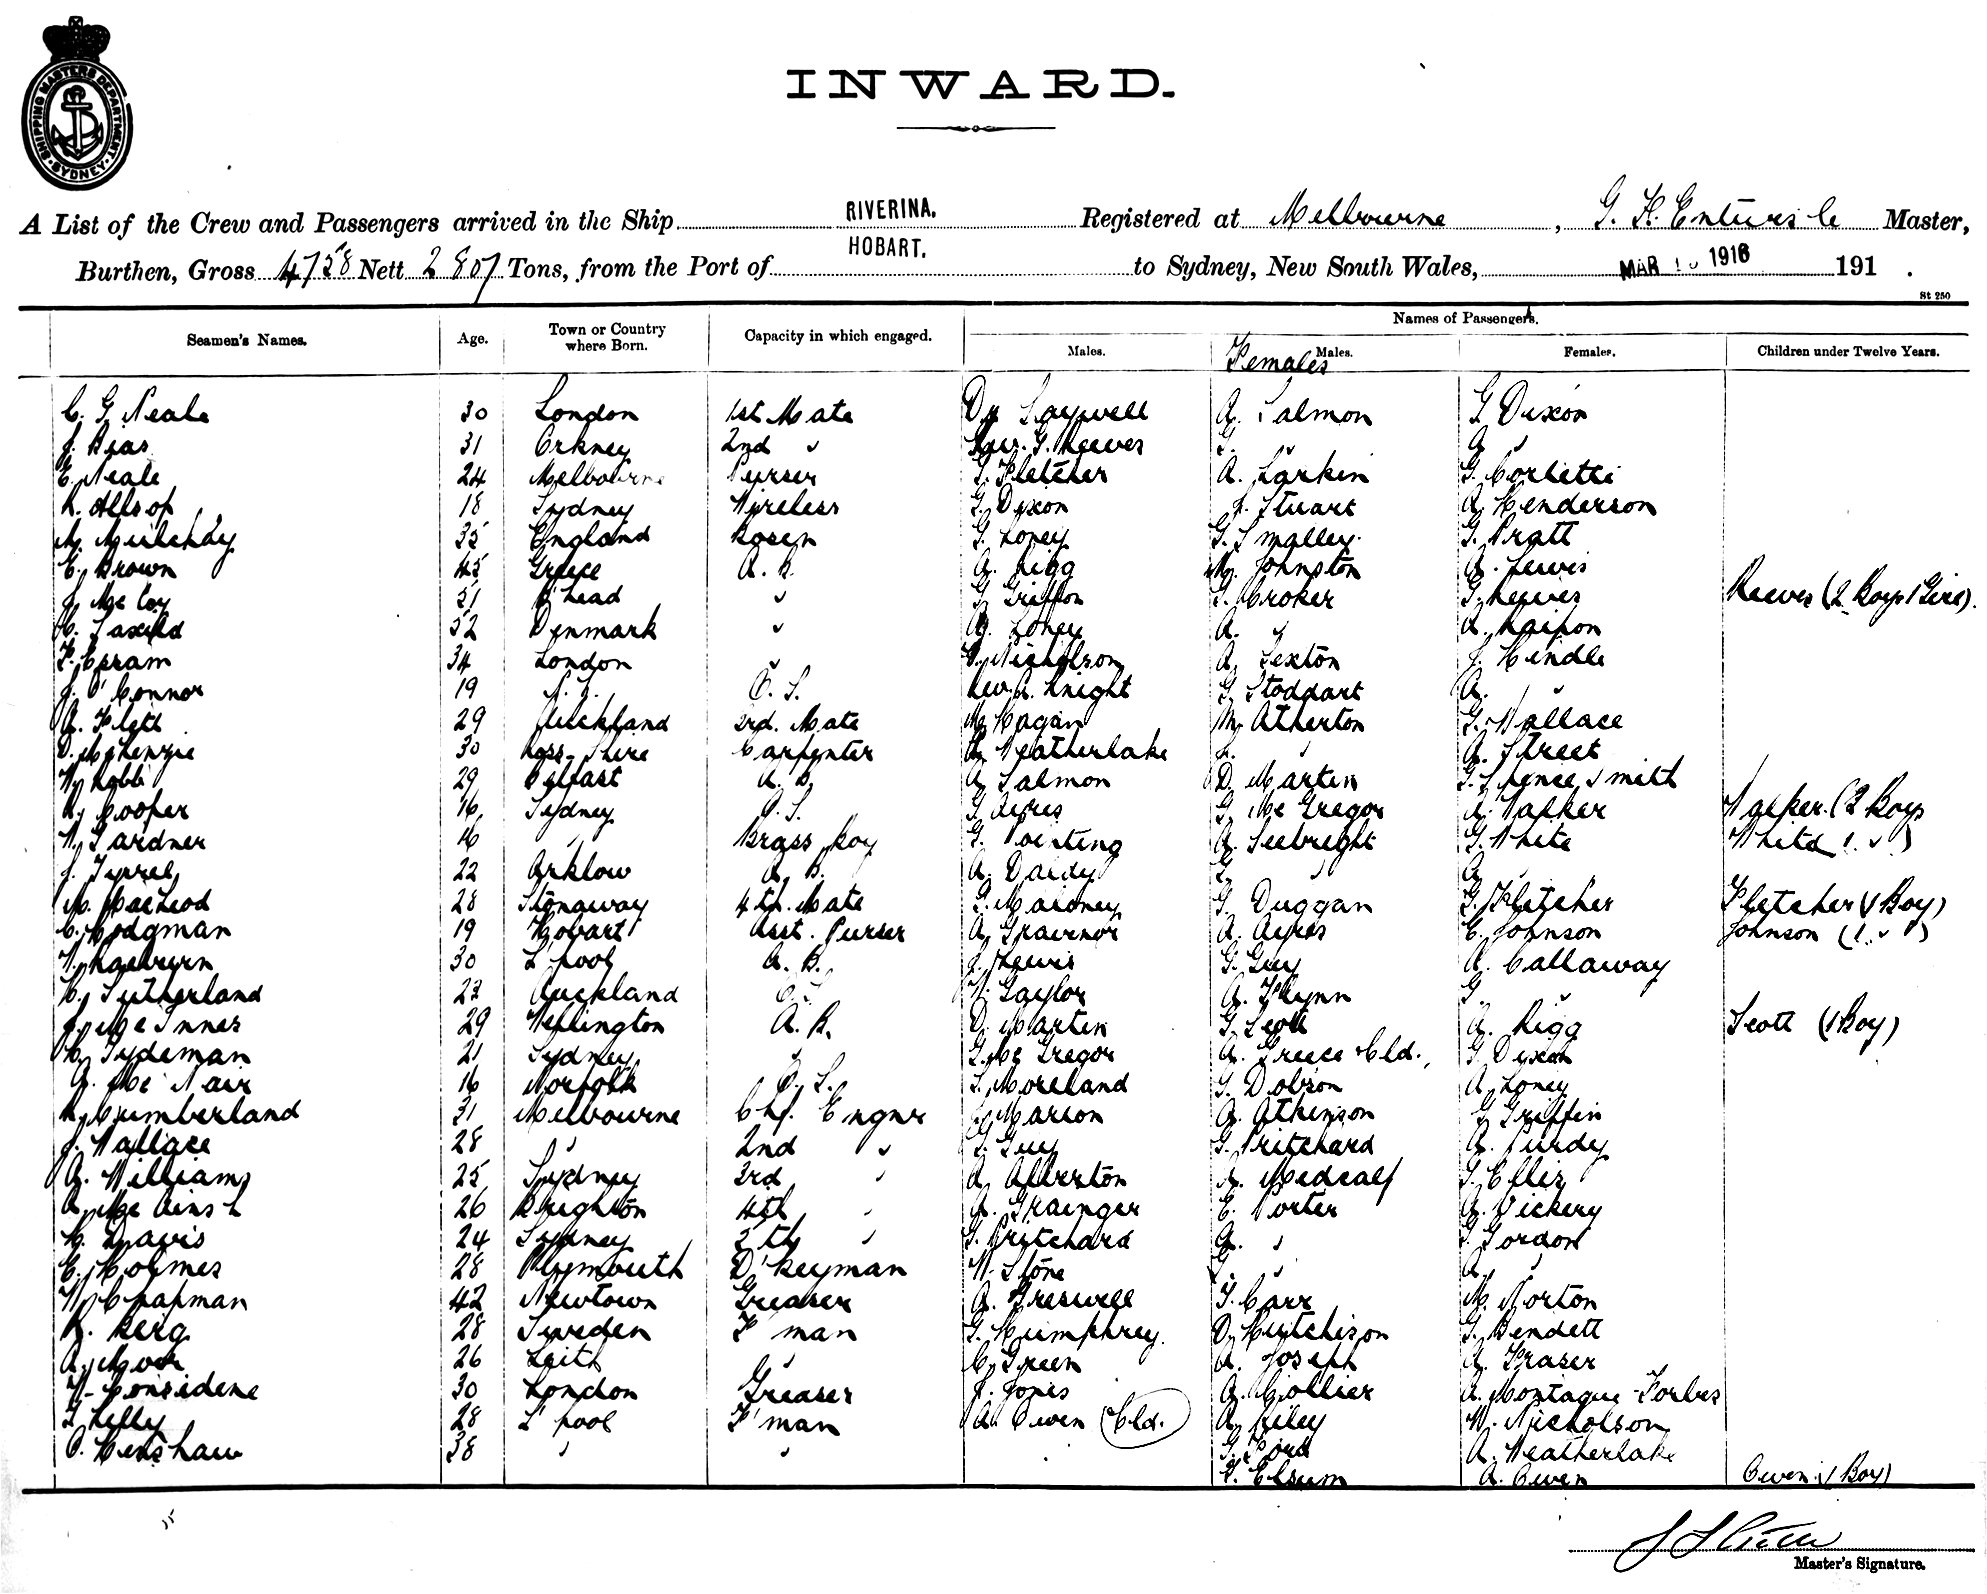 SHIPPING MASTERS DEPARTMENT SYDNEY
INWARD.
A List of the Crew and Passengers arrived in the Ship RIVERINA. Registered at Melbourne, G. Master,
Burthen, Gross 4758 Nett 2807 Tons, from the Port of HOBART. to Sydney, New South Wales, MAR 1916 191 .
St 250
Names of Passengers.
Seamen's Names. Age. Town or Country where Born. Capacity in which engaged. Males. Females Males. Females. Children under Twelve Years.
C. G. Neale 30 London 1st Mate Dr Saywell A. Salmon G Dixon
J. 31 Orkney 2nd " G. Reeves G. " A. "
E. Neale 24 Melbourne Purser G. Fletcher A. Larkin G. Corbetti
R. Allsop 18 Sydney Wireless G. Dixon J. Stuart A. Henderson
M. 35 England Bosen G. Loney G. Smalley G. Pratt
E. Brown 45 Greece A. B. A. Rigg M. Johnston A. Lewis
J. McCoy 51 B'head " G. Griffon G. Croker G. Reeves Reeves (2 Boys 1 Girl).
C. 52 Denmark " A. Loney A. " A.
F. 34 London " Nicholson A. Sexton J. Hindle
J. O'Connor 19 N. Z. O. S. Rev. A. Knight G. Stoddart A. "
A. 29 Auckland 3rd. Mate M. Hagan M. Atherton G. Wallace
D. McKenzie 30 Ross-Shire Carpenter A. Weatherlake L. " A. Street
W. Robb 29 Belfast A. B. A. Salmon D. Martin G. Spence Smith
R. Cooper 16 Sydney O. S. G. Ayres G. McGregor A. Walker Walker. (2 Boys
W. Gardner 16 " Brass Boy G. Pointing A. Seebright G. White White (1 " )
J. Tyrrel 22 Arklow A. B. A. Dardy G. " A. "
M. MacLeod 28 Stonaway 4th. Mate G. Maloney G. Duggan G. Fletcher Fletcher (1 Boy)
C. Hodgman 19 Hobart Asst. Purser A. Gravenor A. Ayres E. Johnson Johnson (1 " )
30 L'pool A. B. J. Lewis G. Guy A. Callaway
C. Sutherland 22 Auckland O. S. W. Taylor A. Flynn G. "
J. McInnes 29 Wellington A. B. D. Martin G. Scott A. Rigg Scott (1 Boy)
C. Tydeman 21 Sydney " G. McGregor A. Greece Cld. G. Dixon
A. McNair 16 Norfolk O. S. S. Moreland G. Dobson A. Loney
R. Cumberland 31 Melbourne Chf. Engnr Marion A. Atkinson G. Griffin
J. Wallace 28 " 2nd " G. Guy G. Pritchard A. Purdy
A. Williams 25 Sydney 3rd " A. Alberton A. Medcalf G. Ellis
A. McAinsh 26 Brighton 4th " A. Grainger E. Porter A. Vickery
H. Davis 24 Sydney 5th " G. Pritchard A. " G. Gordon
C. Holmes 28 Plymouth D'keyman W. Stone G. " A. "
W. Chapman 42 Newtown Greaser A. Greswell T. Carr M. Norton
K. Berg 28 Sweden F'man G. Humphrey D. Hutchison G. Bendett
A. Moir 26 Leith " C. Green A. Joseph A. Fraser
W. Considene 30 London Greaser J. Jones A. Collier A. Montague-Forbes
T. Kelly 28 L'pool F'man A. Owen (Cld.) A. Riley W. Nicholson
O. Henshaw 38 " " G. Ford A. Weatherlake
F. Elsum A. Owen Owen (1 Boy)
Master's Signature.